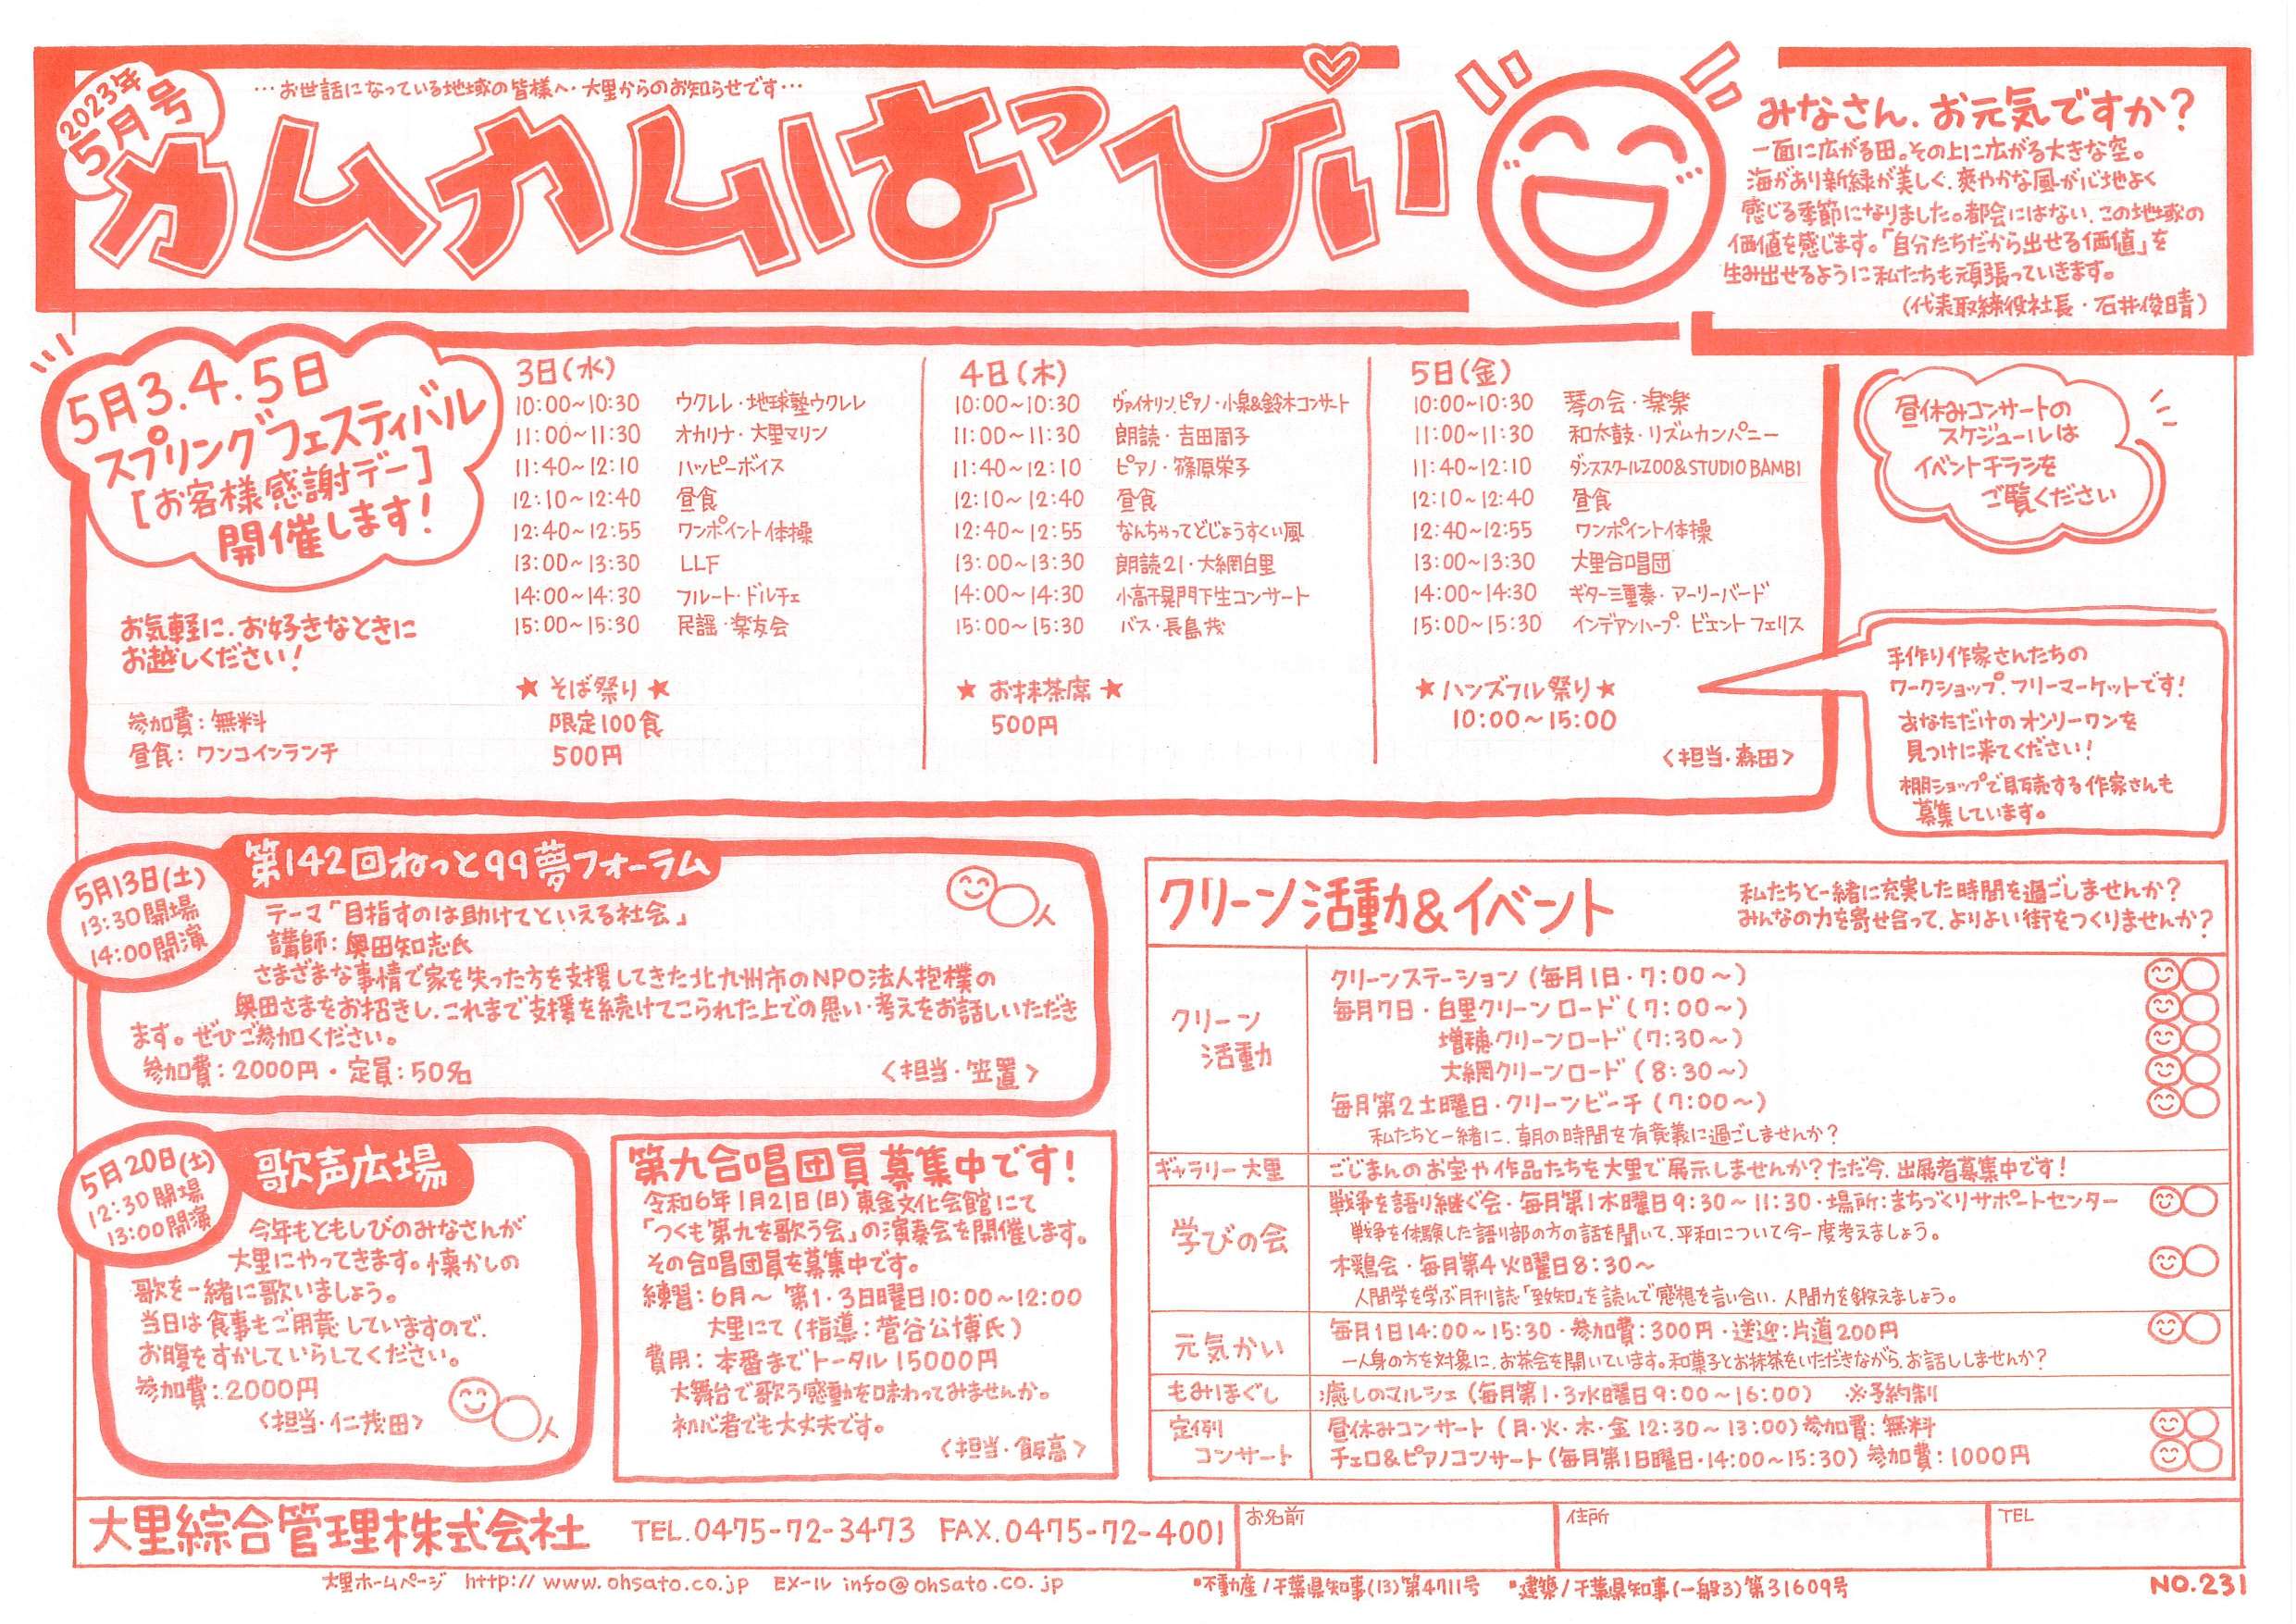 2023年
5月号
…お世話になっている地域の皆様へ・大里からのお知らせです…
カムカムはっぴぃ
みなさん、お元気ですか？
一面に広がる田。その上に広がる大きな空。
海があり新緑が美しく、爽やかな風が心地よく
感じる季節になりました。都会にはない、この地域の
価値を感じます。「自分たちだから出せる価値」を
生み出せるように私たちも頑張っていきます。
(代表取締役社長・石井俊晴)
5月3.4.5日
スプリングフェスティバル
[お客様感謝デー]
開催します！
お気軽に、お好きなときに
お越しください！
参加費：無料
昼食：ワンコインランチ
3日(水)
10:00～10:30 ウクレレ・地球塾ウクレレ
11:00～11:30 オカリナ・大里マリン
11:40～12:10 ハッピーボイス
12:10～12:40 昼食
12:40～12:55 ワンポイント体操
13:00～13:30 LLF
14:00～14:30 フルート・ドルチェ
15:00～15:30 民謡・楽友会
★そば祭り★
限定100食
500円
4日(木)
10:00～10:30 ヴァイオリン、ピアノ・小泉&鈴木コンサート
11:00～11:30 朗読・吉田周子
11:40～12:10 ピアノ・篠原栄子
12:10～12:40 昼食
12:40～12:55 なんちゃってどじょうすくい風
13:00～13:30 朗読21・大網白里
14:00～14:30 小高千晃門下生コンサート
15:00～15:30 バス・長島茂
★お抹茶席★
500円
5日(金)
10:00～10:30 琴の会・楽楽
11:00～11:30 和太鼓・リズムカンパニー
11:40～12:10 ダンススクールZOO&STUDIO BAMBI
12:10～12:40 昼食
12:40～12:55 ワンポイント体操
13:00～13:30 大里合唱団
14:00～14:30 ギター三重奏・アーリーバード
15:00～15:30 インデアンハープ・ビエント フェリス
★ハンズフル祭り★
10:00～15:00
<担当・森田>
昼休みコンサートの
スケジュールは
イベントチラシを
ご覧ください
手作り作家さんたちの
ワークショップ、フリーマーケットです！
あなただけのオンリーワンを
見つけに来てください！
棚ショップで販売する作家さんも
募集しています。
5月13日(土)
13:30開場
14:00開演
第142回ねっと99夢フォーラム
テーマ「目指すのは助けてといえる社会」
講師：奥田知志氏
さまざまな事情で家を失った方を支援してきた北九州市のNPO法人抱樸の
奥田さまをお招きし、これまで支援を続けてこられた上での思い・考えをお話しいただき
ます。ぜひご参加ください。
参加費：2000円・定員：50名
<担当・笠置>
人
5月20日(土)
12:30開場
13:00開演
歌声広場
今年もともしびのみなさんが
大里にやってきます。懐かしの
歌を一緒に歌いましょう。
当日は食事もご用意していますので、
お腹をすかしていらしてください。
参加費：2000円
<担当・仁茂田>
人
第九合唱団員募集中です！
令和6年1月21日(日)東金文化会館にて
「つくも第九を歌う会」の演奏会を開催します。
その合唱団員を募集中です。
練習：6月～ 第1・3日曜日10:00～12:00
大里にて(指導：菅谷公博氏)
費用：本番までトータル15000円
大舞台で歌う感動を味わってみませんか。
初心者でも大丈夫です。
<担当・飯高>
クリーン活動&イベント
私たちと一緒に充実した時間を過ごしませんか？
みんなの力を寄せ合って、よりよい街をつくりませんか？
クリーン
活動
クリーンステーション(毎月1日・7:00～)
毎月7日・白里クリーンロード(7:00～)
増穂クリーンロード(7:30～)
大網クリーンロード(8:30～)
毎月第2土曜日・クリーンビーチ(7:00～)
私たちと一緒に、朝の時間を有意義に過ごしませんか？
ギャラリー大里 ごじまんのお宝や作品たちを大里で展示しませんか？ただ今、出展者募集中です！
学びの会
戦争を語り継ぐ会・毎月第1木曜日9:30～11:30・場所：まちづくりサポートセンター
戦争を体験した語り部の方の話を聞いて、平和について今一度考えましょう。
木鶏会・毎月第4火曜日8:30～
人間学を学ぶ月刊誌「致知」を読んで感想を言い合い、人間力を鍛えましょう。
元気かい
毎月1日14:00～15:30・参加費：300円・送迎：片道200円
一人身の方を対象に、お茶会を開いています。和菓子とお抹茶をいただきながら、お話ししませんか？
もみほぐし 癒しのマルシェ(毎月第1・3水曜日9:00～16:00) ※予約制
定例
コンサート
昼休みコンサート(月・火・木・金12:30～13:00)参加費：無料
チェロ&ピアノコンサート(毎月第1日曜日・14:00～15:30)参加費：1000円
大里綜合管理株式会社 TEL.0475-72-3473 FAX.0475-72-4001
お名前
住所
TEL
大里ホームページ http://www.ohsato.co.jp Eメール info@ohsato.co.jp
•不動産/千葉県知事(13)第4711号 •建築/千葉県知事(一般3)第31609号
NO.231